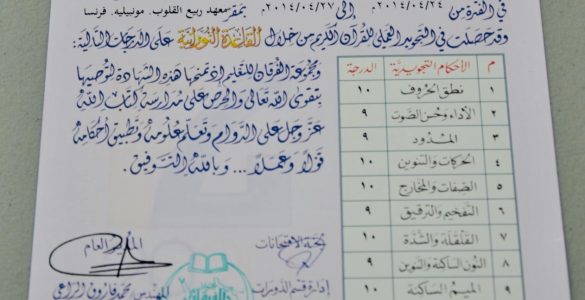 في الفترة من ٢٠١٤/٠٤/٢٤ إلى ٢٠١٤/٠٤/٢٧ بمقر معهد ربيع القلوب. مونبيليه. فرنسا
وقد حصلت في التجويد العملي للقرآن الكريم من خلال القاعدة النورانية على الدرجات التالية:
م الأحكام التجويدية الدرجة
١ نطق الحروف ١٠
٢ الأداء وحسن الصوت ٩
٣ المدود ٩
٤ الحركات والتنوين ١٠
٥ الصفات والمخارج ١٠
٦ التفخيم والترقيق ٩
٧ القلقلة والشدة ١٠
٨ النون الساكنة والتنوين ٩
٩ الميم الساكنة ١٠
ومجموعة الفرقان للتعليم إذ تمنحها هذه الشهادة لتوصيها
بتقوى الله تعالى والحرص على مدارسة كتاب الله
عز وجل على الدوام وتعلم علومه وتطبيق أحكامه
قولاً وعملاً ... وبالله التوفيق.
لجنة الامتحانات
المدير العام
إدارة قسم الدورات
المهندس محمد فاروق الراعي